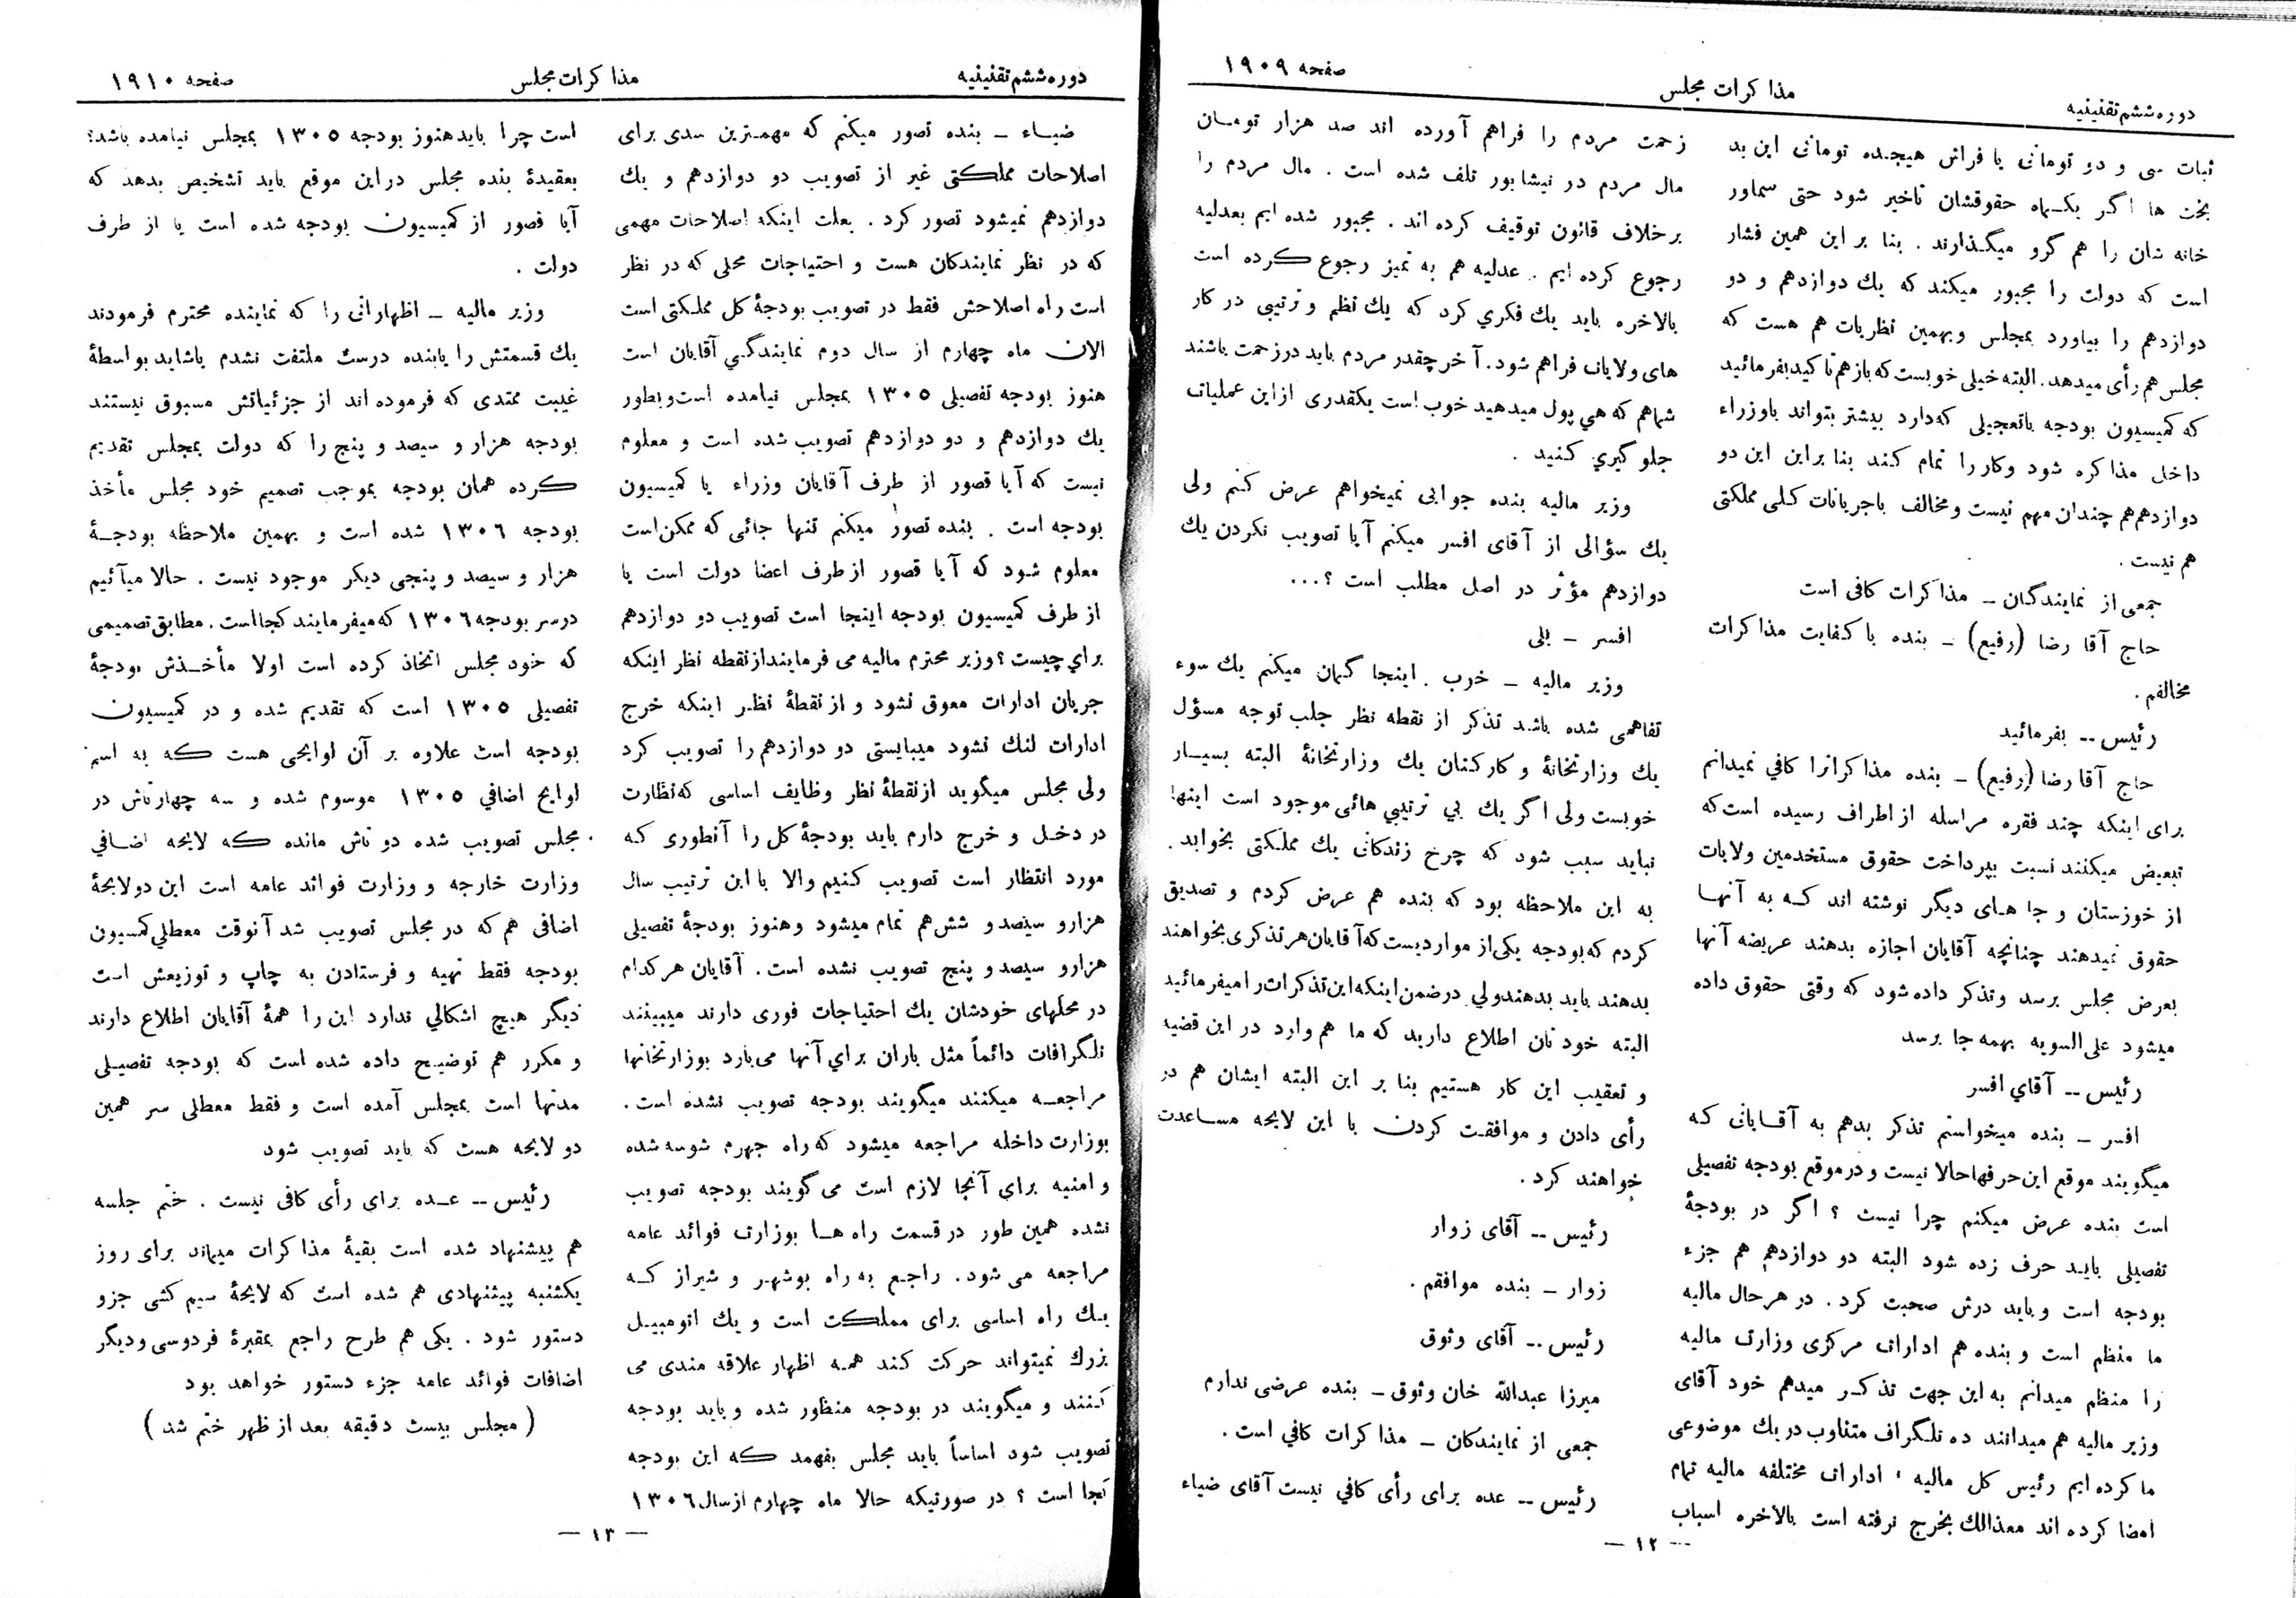 دوره ششم تقنینیه
مذاکرات مجلس
صفحه ۱۹۰۹
ثبات سی و دو تومانی یا فراش هیجده تومانی این بد
بخت ها اگر یکماه حقوقشان تأخیر شود حتی سماور
خانه شان را هم گرو میگذارند . بنا بر این همین فشار
است که دولت را مجبور میکند که یك دوازدهم و دو
دوازدهم را بیاورد بمجلس و بهمین نظریات هم هست که
مجلس هم رأی میدهد. البته خیلی خوبست که باز هم تأکید بفرمائید
که کمیسیون بودجه باتعجیلی که دارد بیشتر بتواند باوزراء
داخل مذاکره شود وکار را تمام کند بنا براین این دو
دوازدهم هم چندان مهم نیست و مخالف باجریانات کلی مملکتی
هم نیست .
جمعی از نمایندگان ــ مذاکرات کافی است
حاج آقا رضا (رفیع) ــ بنده با کفایت مذاکرات
مخالفم .
رئیس -- بفرمائید
حاج آقا رضا (رفیع) ــ بنده مذاکراترا کافي نمیدانم
برای اینکه چند فقره مراسله از اطراف رسیده است که
تبعیض میکنند نسبت بپرداخت حقوق مستخدمین ولایات
از خوزستان و جا های دیگر نوشته اند که به آنها
حقوق نمیدهند چنانچه آقایان اجازه بدهند عریضه آنها
بعرض مجلس برسد وتذکر داده شود که وقتی حقوق داده
میشود علی السویه بهمه جا برسد
رئیس -- آقاي افسر
افسر ــ بنده میخواستم تذکر بدهم به آقایانی که
میگویند موقع این حرفها حالا نیست و در موقع بودجه تفصیلی
است بنده عرض میکنم چرا نیست ؟ اگر در بودجۀ
تفصیلی باید حرف زده شود البته دو دوازدهم هم جزء
بودجه است و باید درش صحبت کرد . در هر حال مالیه
ما منظم است و بنده هم ادارات مرکزی وزارت مالیه
را منظم میدانم به این جهت تذکر میدهم خود آقای
وزیر مالیه هم میدانند ده تلگراف متناوب در یك موضوعی
ما کرده ایم رئیس کل مالیه ، ادارات مختلفه مالیه تمام
امضا کرده اند معذالك بخرج نرفته است بالاخره اسباب
زحمت مردم را فراهم آورده اند صد هزار تومان
مال مردم در نیشابور تلف شده است . مال مردم را
برخلاف قانون توقیف کرده اند . مجبور شده ایم بعدلیه
رجوع کرده ایم . عدلیه هم به تمیز رجوع کرده است
بالاخره باید یك فکري کرد که یك نظم و ترتیبی در کار
های ولایات فراهم شود. آخر چقدر مردم باید در زحمت باشند
شما هم که هي پول میدهید خوب است یکقدری از این عملیات
جلوگیري کنید .
وزیر مالیه بنده جوابی نمیخواهم عرض کنم ولی
یك سؤالی از آقای افسر میکنم آیا تصویب نکردن یك
دوازدهم مؤثر در اصل مطلب است ؟...
افسر ــ بلی
وزیر مالیه ــ خوب . اینجا گمان میکنم یك سوء
تفاهمی شده باشد تذکر از نقطه نظر جلب توجه مسؤل
یك وزارتخانۀ و کارکنان یك وزارتخانۀ البته بسیار
خوبست ولی اگر یك بي ترتیبي هائی موجود است اینها
نباید سبب شود که چرخ زندکانی یك مملکتی بخوابد .
به این ملاحظه بود که بنده هم عرض کردم و تصدیق
کردم که بودجه یکی از مواردیست که آقایان هر تذکری بخواهند
بدهند باید بدهند ولي در ضمن اینکه این تذکرات را میفرمائید
البته خودتان اطلاع دارید که ما هم وارد در این قضیه
و تعقیب این کار هستیم بنا بر این البته ایشان هم در
رأی دادن و موافقت کردن با این لایحه مساعدت
خواهند کرد .
رئیس -- آقای زوار
زوار ــ بنده موافقم .
رئیس -- آقای وثوق
میرزا عبدالله خان وثوق ــ بنده عرضی ندارم
جمعی از نمایندکان ــ مذاکرات کافي است .
رئیس -- عده برای رأی کافي نیست آقای ضیاء
— ۱۲ —
دوره ششم تقنینیه
مذاکرات مجلس
صفحه ۱۹۱۰
ضیاء ــ بنده تصور میکنم که مهمترین سدی برای
اصلاحات مملکتی غیر از تصویب دو دوازدهم و یك
دوازدهم نمیشود تصور کرد . بعلت اینکه اصلاحات مهمی
که در نظر نمایندکان هست و احتیاجات محلی که در نظر
است راه اصلاحش فقط در تصویب بودجۀ کل مملکتی است
الان ماه چهارم از سال دوم نمایندگي آقایان است
هنوز بودجه تفصیلی ۱۳۰۵ بمجلس نیامده است و بطور
یك دوازدهم و دو دوازدهم تصویب شده است و معلوم
نیست که آیا قصور از طرف آقایان وزراء یا کمیسیون
بودجه است . بنده تصور میکنم تنها جائی که ممکن است
معلوم شود که آیا قصور از طرف اعضا دولت است یا
از طرف کمیسیون بودجه اینجا است تصویب دو دوازدهم
براي چیست ؟ وزیر محترم مالیه می فرمایند از نقطه نظر اینکه
جریان ادارات معوق نشود و از نقطۀ نظر اینکه خرج
ادارات لنك نشود میبایستی دو دوازدهم را تصویب کرد
ولی مجلس میگوید از نقطۀ نظر وظایف اساسی که نظارت
در دخل و خرج دارم باید بودجۀ کل را آنطوری که
مورد انتظار است تصویب کنیم والا با این ترتیب سال
هزار و سیصد و شش هم تمام میشود وهنوز بودجۀ تفصیلی
هزار و سیصد و پنج تصویب نشده است . آقایان هر کدام
در محلهای خودشان یك احتیاجات فوری دارند میبینند
تلگرافات دائماً مثل باران براي آنها می بارد بوزارتخانها
مراجعه میکنند میگویند بودجه تصویب نشده است .
بوزارت داخله مراجعه میشود که راه جهرم شوسه شده
و امنیه برای آنجا لازم است می گویند بودجه تصویب
نشده همین طور در قسمت راه ها بوزارت فوائد عامه
مراجعه می شود . راجع به راه بوشهر و شیراز که
یك راه اساسی برای مملکت است و یك اتومبیل
بزرك نمیتواند حرکت کند همه اظهار علاقه مندی می
کنند و میگویند در بودجه منظور شده و باید بودجه
تصویب شود اساساً باید مجلس بفهمد که این بودجه
کجا است ؟ در صورتیکه حالا ماه چهارم از سال ۱۳۰۶
است چرا باید هنوز بودجه ۱۳۰۵ بمجلس نیامده باشد؟
بعقیدۀ بنده مجلس در این موقع باید تشخیص بدهد که
آیا قصور از کمیسیون بودجه شده است یا از طرف
دولت .
وزیر مالیه ــ اظهاراتی را که نماینده محترم فرمودند
یك قسمتش را یابنده درست ملتفت نشدم یاشاید بواسطۀ
غیبت ممتدی که فرموده اند از جزئیاتش مسبوق نیستند
بودجه هزار و سیصد و پنج را که دولت بمجلس تقدیم
کرده همان بودجه بموجب تصمیم خود مجلس مأخذ
بودجه ۱۳۰۶ شده است و بهمین ملاحظه بودجۀ
هزار و سیصد و پنجی دیکر موجود نیست . حالا میآئیم
در سر بودجه ۱۳۰۶ که میفرمایند کجا است . مطابق تصمیمی
که خود مجلس اتخاذ کرده است اولا مأخذش بودجۀ
تفصیلی ۱۳۰۵ است که تقدیم شده و در کمیسیون
بودجه است علاوه بر آن لوایحی هست که به اسم
لوایح اضافي ۱۳۰۵ موسوم شده و سه چهارتاش در
مجلس تصویب شده دو تاش مانده که لایحه اضافي
وزارت خارجه و وزارت فوائد عامه است این دولایحۀ
اضافی هم که در مجلس تصویب شد آنوقت معطلي کمسیون
بودجه فقط تهیه و فرستادن به چاپ و توزیعش است
دیگر هیچ اشکالي ندارد این را همۀ آقایان اطلاع دارند
و مکرر هم توضیح داده شده است که بودجه تفصیلی
مدتها است بمجلس آمده است و فقط معطلی سر همین
دو لایحه هست که باید تصویب شود
رئیس -- عده برای رأی کافی نیست . ختم جلسه
هم پیشنهاد شده است بقیۀ مذاکرات میماند برای روز
یکشنبه پیشنهادی هم شده است که لایحۀ سیم کشی جزو
دستور شود . یکی هم طرح راجع بمقبرۀ فردوسی و دیگر
اضافات فوائد عامه جزء دستور خواهد بود
( مجلس بیست دقیقه بعد از ظهر ختم شد )
— ۱۳ —